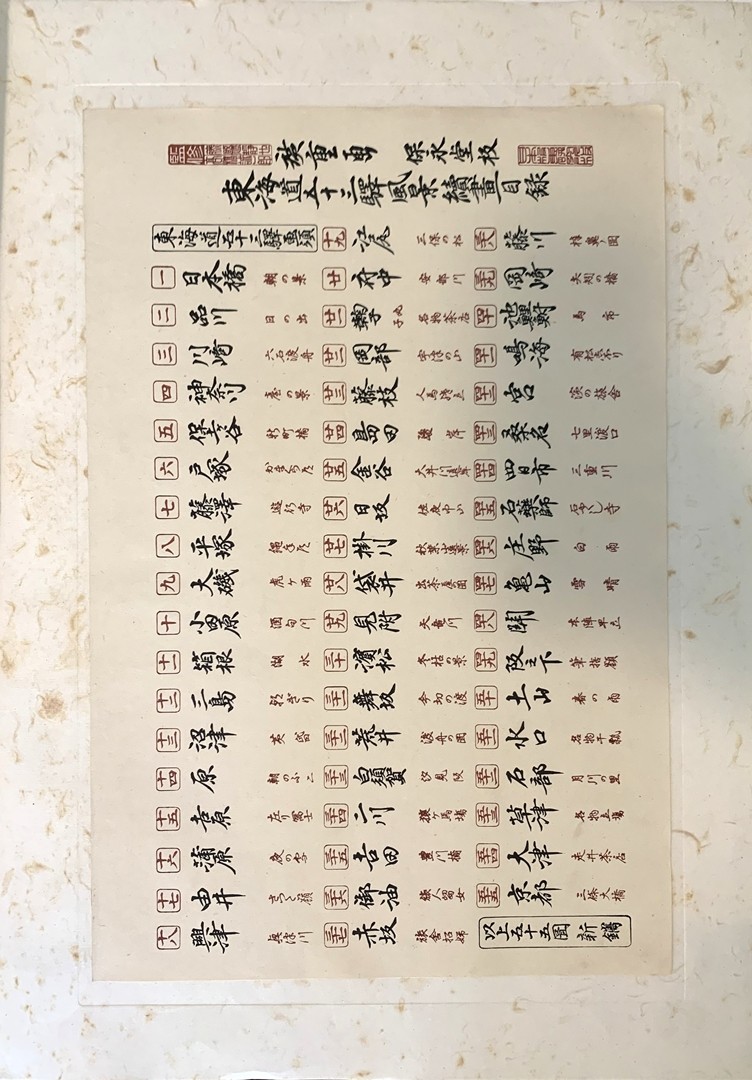 廣重画 保永堂板
東海道五十三驛風景續畫目録
東海道五十三驛
一 日本橋 朝の景
二 品川 日の出
三 川崎 六郷渡舟
四 神奈川 臺の景
五 保土ヶ谷 新町橋
六 戸塚
七 藤澤 遊行寺
八 平塚 縄手
九 大磯 虎ヶ雨
十 小田原 酒匂川
十一 箱根 湖水
十二 三島 朝ぎり
十三 沼津 黄昏
十四 原 朝のふじ
十五 吉原 左り冨士
十六 蒲原 夜の雪
十七 由井
十八 興津 興津川
十九 江尻 三保の松
廿 府中 安部川
廿一 鞠子 丸子 名物茶店
廿二 岡部 宇津の山
廿三 藤枝 人馬継立
廿四 島田
廿五 金谷 大井川遠岸
廿六 日坂 佐夜中山
廿七 掛川 秋葉山遠景
廿八 袋井 出茶屋の圖
廿九 見附 天竜川
三十 濱松 冬枯の景
三十一 舞坂 今切の渡
三十二 荒井 渡舟の圖
三十三 白須賀 汐見阪
三十四 二川 猿ヶ馬場
三十五 吉田 豊川橋
三十六 御油 旅人留女
三十七 赤坂 旅舎招婦
三十八 藤川 棒鼻ノ圖
三十九 岡崎 矢矧の橋
四十 池鯉鮒 馬市
四十一 鳴海 有松志ぼり
四十二 宮
四十三 桑名 七里渡口
四十四 四日市 三重川
四十五 石藥師 石やくし寺
四十六 庄野 白雨
四十七 亀山 雪晴
四十八 關 本陣早立
四十九 阪之下 筆捨嶺
五十 土山 春の雨
五十一 水口 名物干瓢
五十二 石部 目川の里
五十三 草津 名物立場
五十四 大津 走井茶店
五十五 京都 三條大橋
以上五十五圖 新鐫